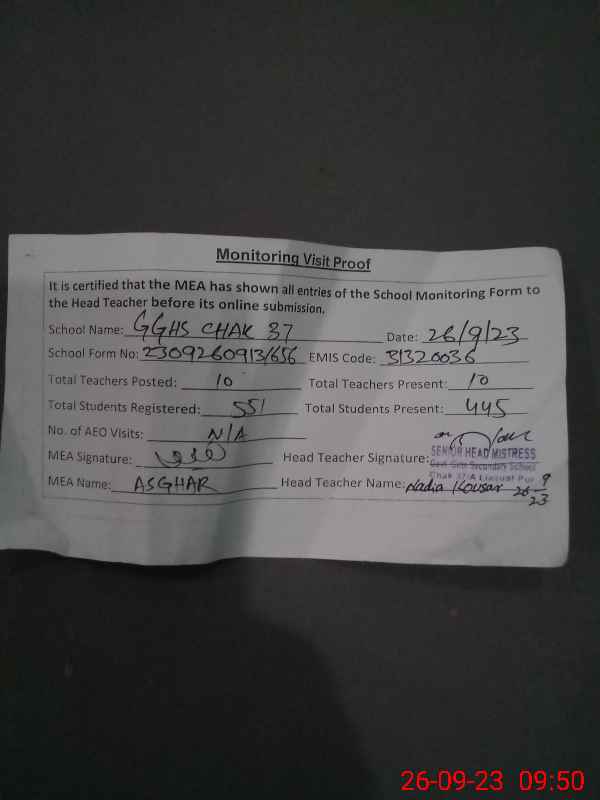 Monitoring Visit Proof
It is certified that the MEA has shown all entries of the School Monitoring Form to
the Head Teacher before its online submission.
School Name: GGHS CHAK 37 Date: 26/9/23
School Form No: 2309260913/656 EMIS Code: 31320036
Total Teachers Posted: 10 Total Teachers Present: 10
Total Students Registered: 551 Total Students Present: 445
No. of AEO Visits: N/A
MEA Signature: Head Teacher Signature: SENIOR HEAD MISTRESS
Govt. Girls Secondary School
Chak 37-A Liaquat Pur
MEA Name: ASGHAR Head Teacher Name: Nadia Kousar 26-9-23
26-09-23 09:50